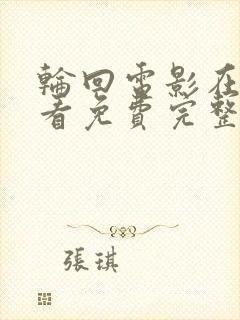 輪回電影在
看免費完整
張琪